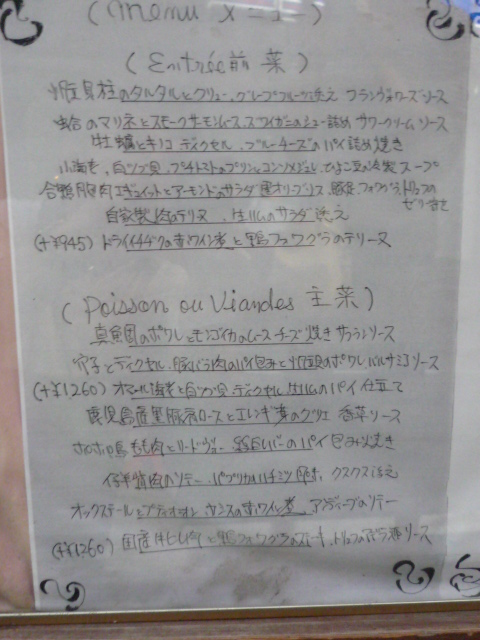 (Menu メニュー)
(Entrée 前菜)
帆立貝柱のタルタルとクリュ、グレープフルーツ添え フランヴォワーズソース
蛤のマリネとスモークサーモンムース、ズワイガニのシュー詰め サワークリームソース
牡蠣とキノコ ディクセル、ブルーチーズのパイ詰め焼き
小海老、白ツブ貝、プチトマトのプリン、コンソメジュレ、ひよこ豆の冷製スープ
合鴨胸肉エギュイットとアーモンドのサラダ 黒オリーブソース 豚足、フォワグラ、トリュフの
ゼリー寄せ
自家製 肉のテリーヌ、生ハムのサラダ添え
(+¥945) ドライイチヂクの赤ワイン煮と鴨フォワグラのテリーヌ
(Poisson ou Viandes 主菜)
真魚鰹のポワレとモンゴイカのムース チーズ焼き サフランソース
穴子とディクセル、豚バラ肉のパイ包みと のポワレ バルサミコソース
(+¥1260) オマール海老と白ツブ貝、ディクセル、生ハムのパイ仕立て
鹿児島産黒豚肩ロースとエレンギ茸のグリエ 香草ソース
ホロホロ鳥もも肉とリードヴォー、 レバーのパイ包み焼き
仔羊 肉のソテー、パプリカハチミツ風味、クスクス添え
オックステールとプティオニオン、 の赤ワイン煮、アンディーブのソテー
(+¥1260) 国産牛ヒレ肉と鴨フォワグラのソテー、トリュフの ソース